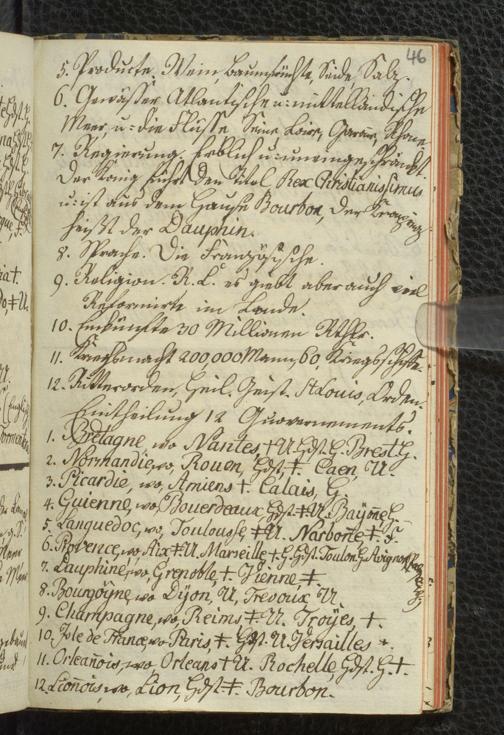 46
5. Producte. Wein, Baumfrüchte, Seide Salz.
6. Gewässer Atlantische u: mittelländische
Meer, u: die Flüsse Seine Loire, Garon, Rhone.
7. Regierung. Erblich u: uneingeschränkt.
Der König führt den Titel Rex Christianissimus
u: ist aus dem Hause Bourbon, der Cronprinz
heißt der Dauphin.
8. Sprache. Die Französische.
9. Religion. R. C. es giebt aber auch viel
Reformirte im Lande.
10. Einkünfte 30 Millionen Rthlr.
11. Kriegsmacht 200,000 Mann, 60, Kriegs Schiffe.
12. Ritterorden, Heil. Geist. St Louis, Orden.
Eintheilung 12 Guovernements.
1. Bretagne, wo Nantes, † U. Gdst. G. Brest G.
2. Normandie, wo, Rouen, Gdst ‡. Caen, U.
3. Picardie, wo, Amiens †. Calais, G.
4. Guienne, wo, Bouerdeaux Gdst ‡ U.
5. Languedoc, wo, Toulouse, ‡ U. Narbone ‡.
6. Provence, wo Aix ‡ U. Marseille † G. Gdst. Toulon G. Avignon
7. Dauphiné, wo, Grenoble †. Vienne ‡.
8. Bourgogne, wo Dijon, U, Trevoux U.
9. Champagne, wo, Reims ‡ U. Troyes, †.
10. Isle de France, wo Paris ‡. Gdst. U. Versailles *.
11. Orleanois, wo, Orleans † U. Rochelle, Gdst. G. †.
12. Lionois, wo, Lion, Gdst ‡. Bourbon.